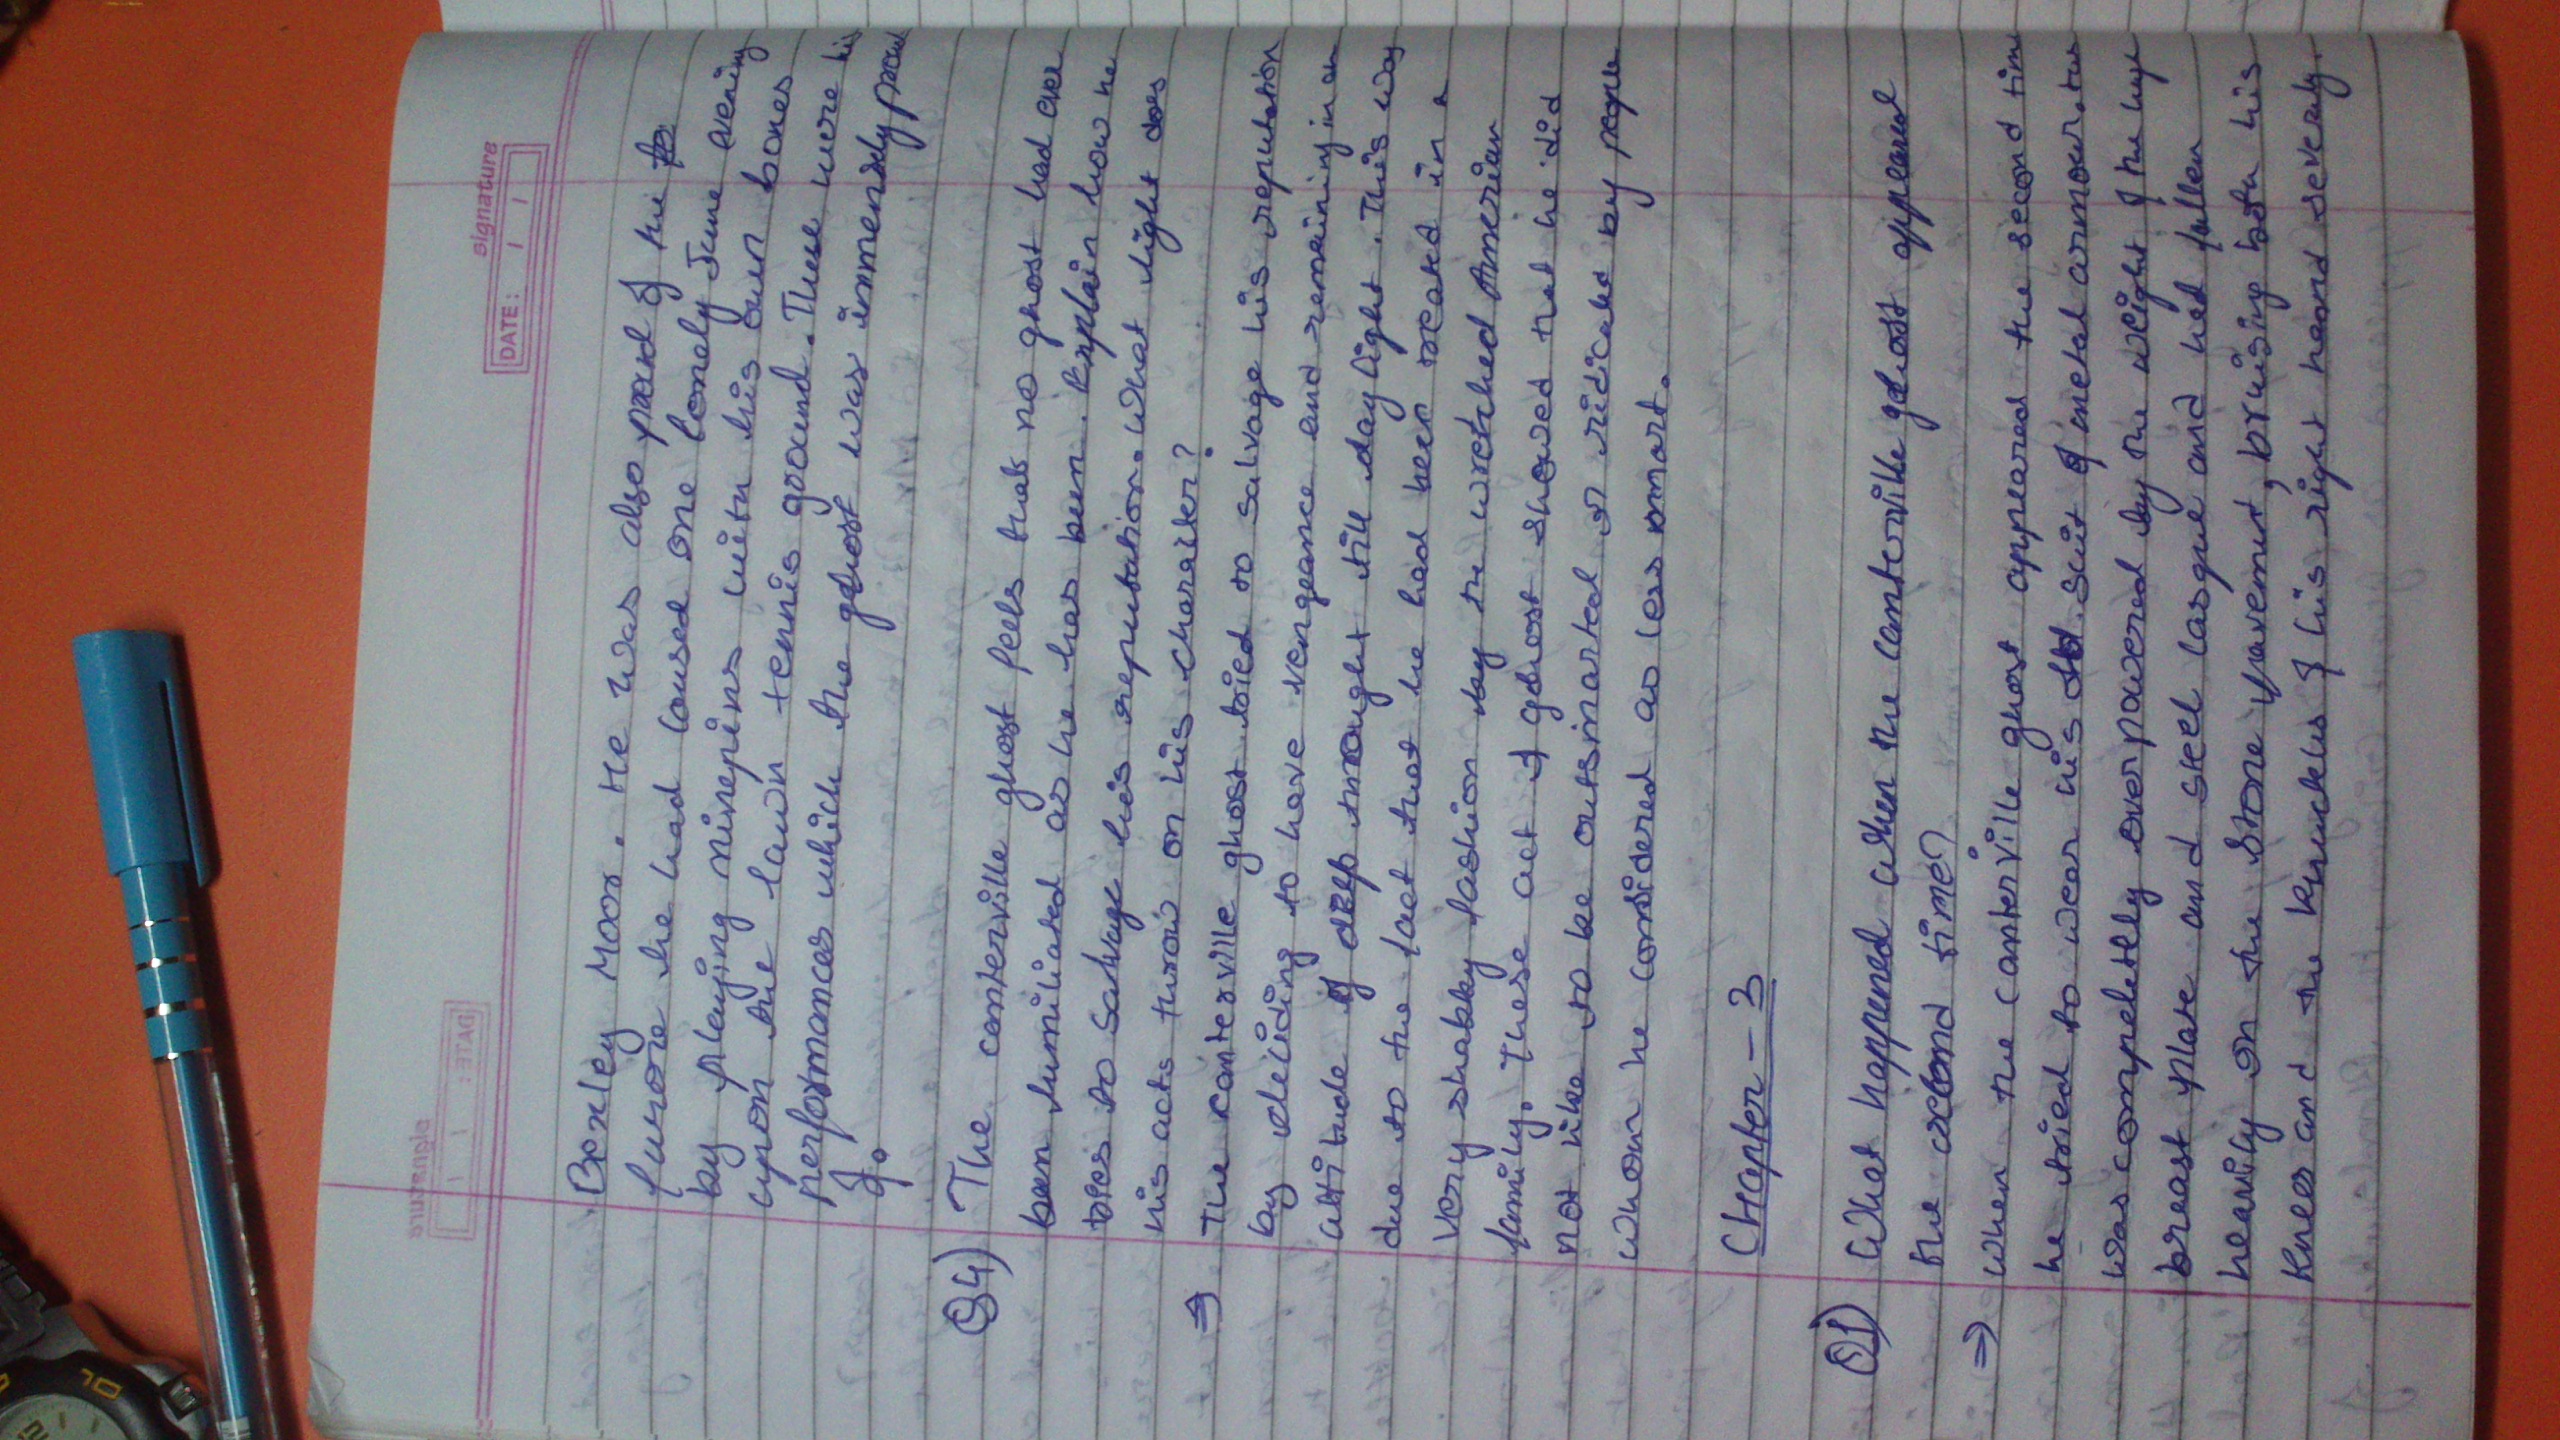 Signature
DATE: / /
Bexley Moor. He was also proud of the fo
furore he had caused one lonely June evening
by playing ninepins with his own bones
upon the lawn tennis ground. These were his
performances which the ghost was immensely proud
of.
Q4) The canterville ghost feels that no ghost had ever
been humiliated as he has been. Explain how he
tries to salvage his reputation. What light does
his acts throw on his character?
⇒ The canterville ghost tried to salvage his reputation
by deciding to have vengeance and remaining in an
attitude of deep thought till daylight. This was
due to the fact that he had been treated in a
very shabby fashion by the wretched American
family. These act of ghost showed that he did
not like to be outsmarted or ridiculed by people
whom he considered as less smart.
Chapter - 3
Q1) What happened when the canterville ghost appeared
the second time?
⇒ When the canterville ghost appeared the second time
he tried to wear his suit of metal armour.
was completely overpowered by the weight of the huge
breast plate and steel casque and had fallen
heavily on the stone pavement, bruising both his
knees and the knuckles of his right hand severely.